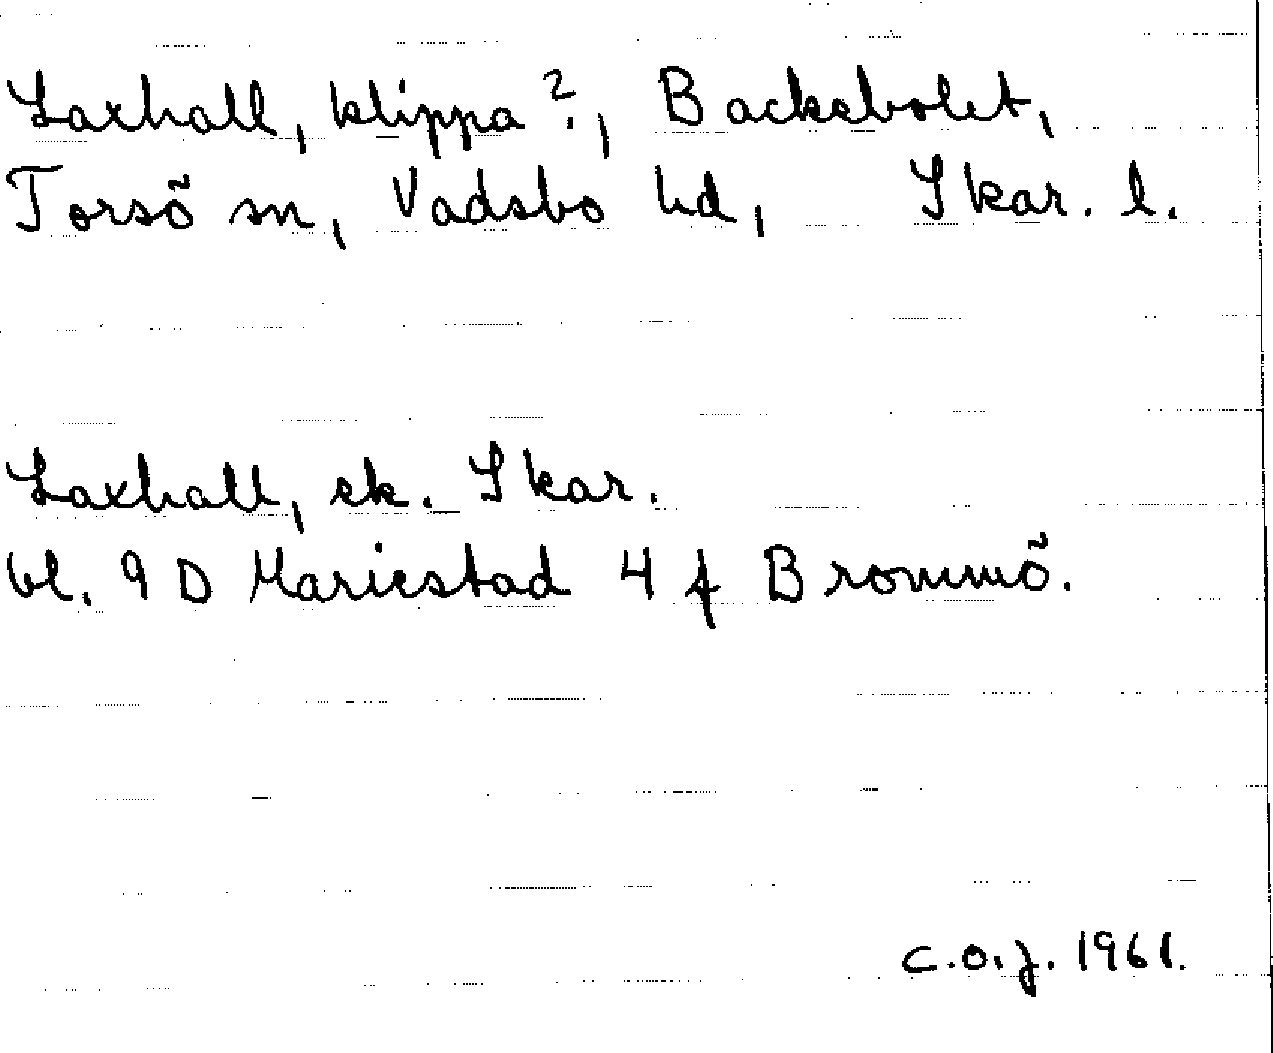 Laxhall, klippa?, Backebolet,
Torsö sn, Vadsbo hd, Skar. l.
Laxhall, ek. Skar.
bl. 9 D Mariestad 4 f Brommö.
C.O.J. 1961.